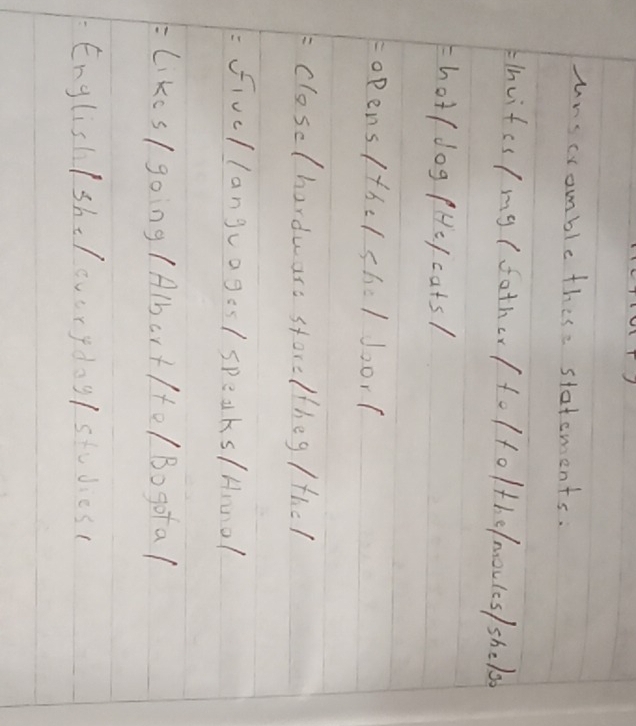 Unscramble these statements:
= Invites / my / father / to / to / the / movies / she / go
= hot / dog / He / eats /
= opens / the / she / door /
= Close / hardware store / they / the /
= five / languages / speaks / Anna /
= Likes / going / Albert / to / Bogota /
= English / she / everyday / studies /